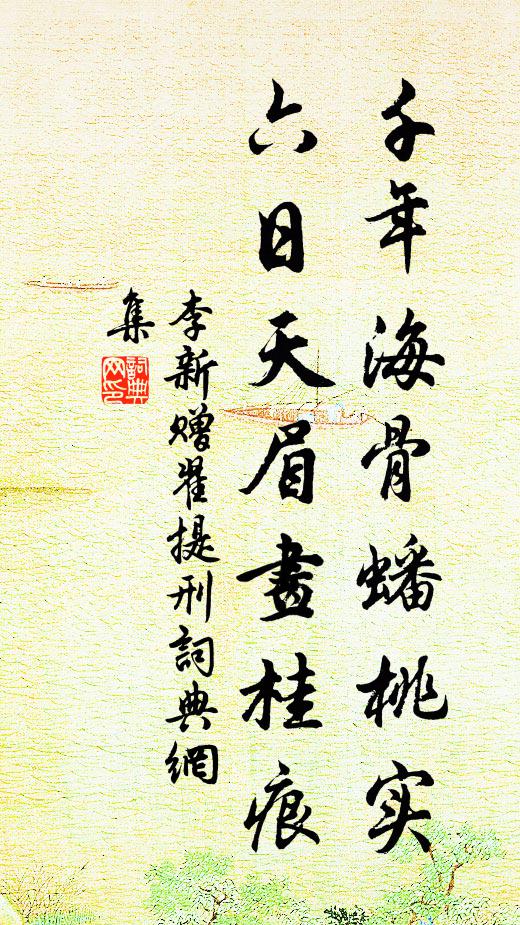 千年海骨蟠桃实
六日天眉畫桂痕
李新赠翟提刑詞典網
集
詞典
网印